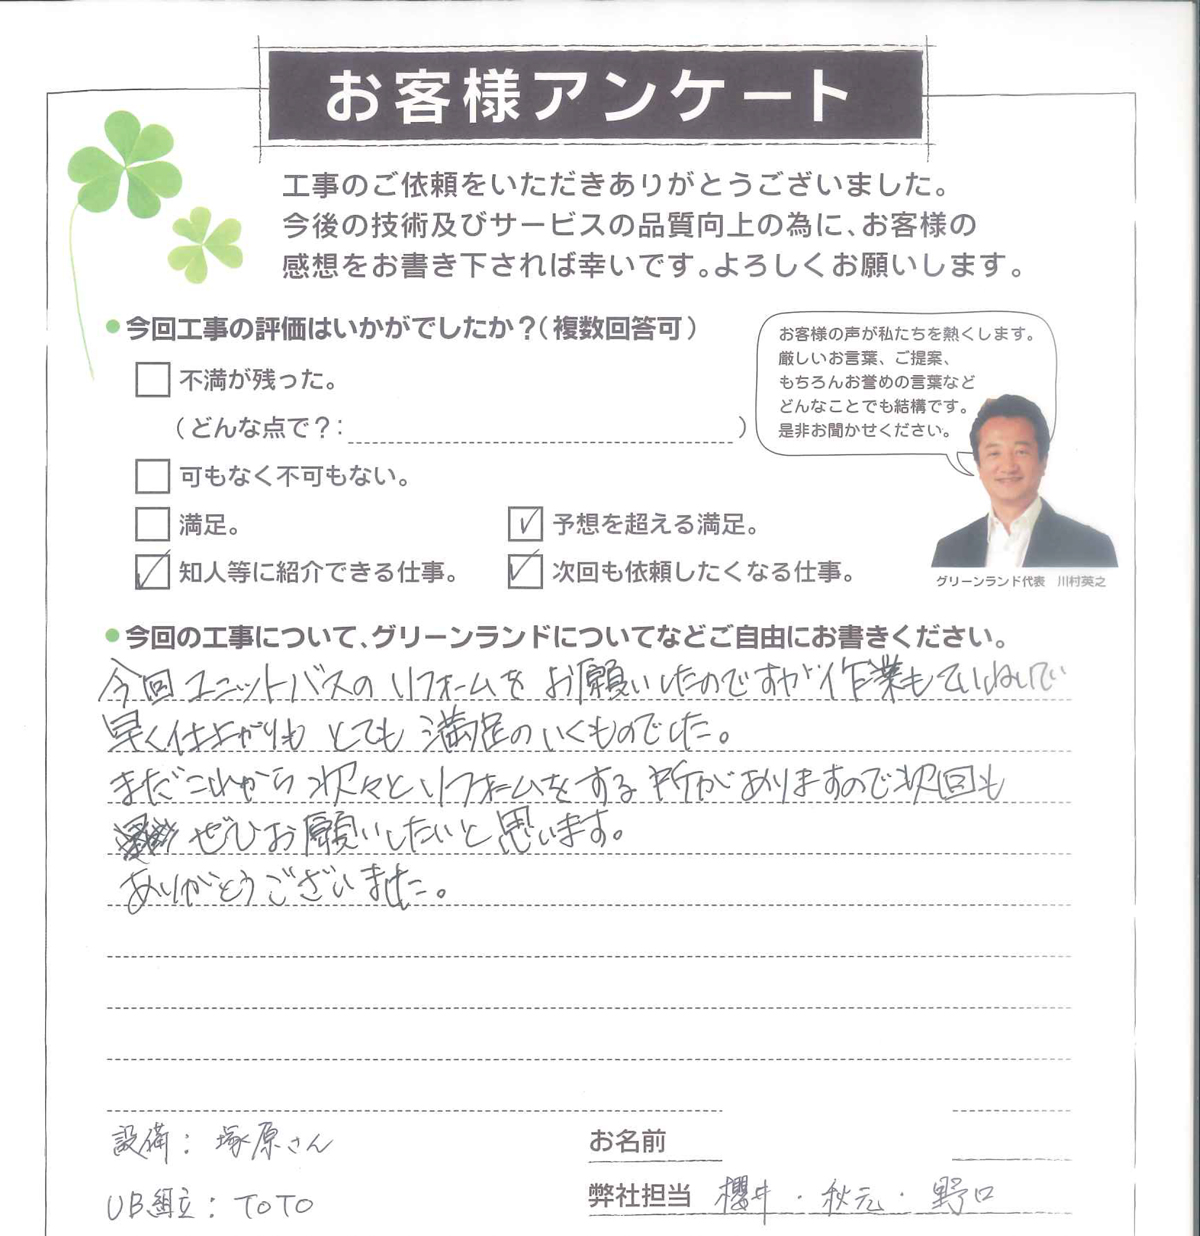 お客様アンケート
工事のご依頼をいただきありがとうございました。
今後の技術及びサービスの品質向上の為に、お客様の
感想をお書き下されば幸いです。よろしくお願いします。
今回工事の評価はいかがでしたか?(複数回答可)
不満が残った。
(どんな点で?: )
可もなく不可もない。
満足。
予想を超える満足。
知人等に紹介できる仕事。
次回も依頼したくなる仕事。
お客様の声が私たちを熱くします。
厳しいお言葉、ご提案、
もちろんお誉めの言葉など
どんなことでも結構です。
是非お聞かせください。
グリーンランド代表 川村英之
今回の工事について、グリーンランドについてなどご自由にお書きください。
今回ユニットバスのリフォームをお願いしたのですが作業もていねいで
早く仕上がりもとても満足のいくものでした。
まだこれから次々とリフォームをする所がありますので次回も
ぜひお願いしたいと思います。
ありがとうございました。
設備:塚原さん
お名前
UB組立:TOTO
弊社担当 櫻井・秋元・野口